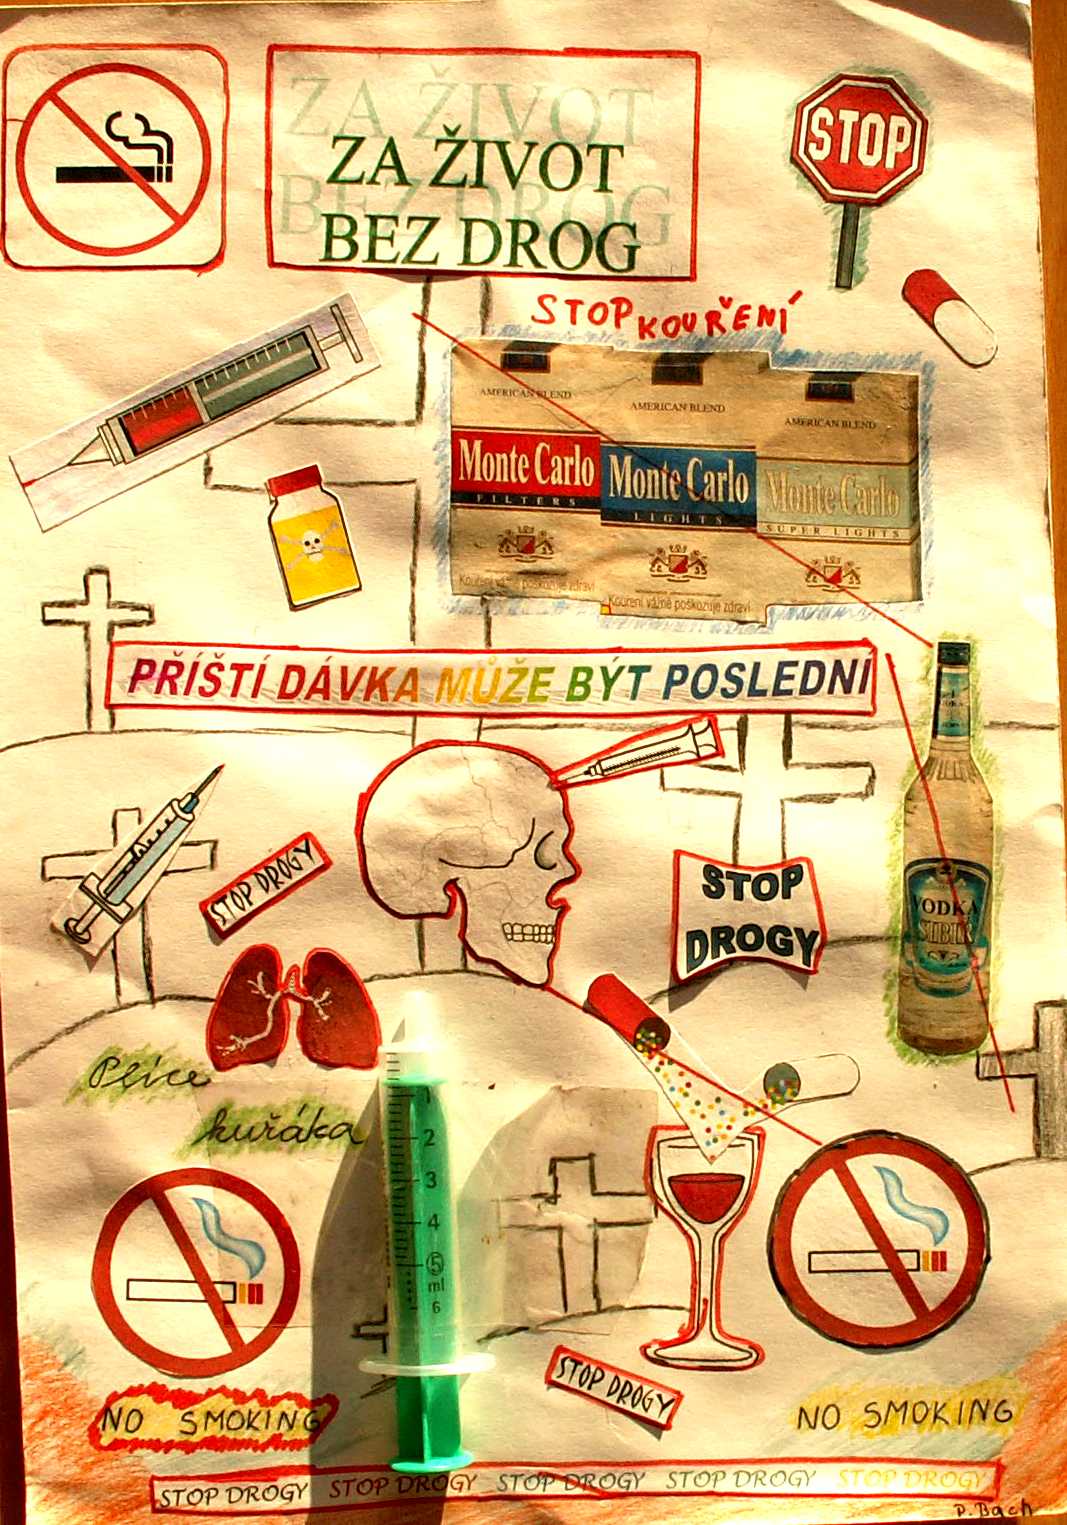 ZA ŽIVOT
BEZ DROG
ZA ŽIVOT
BEZ DROG
STOP
STOP KOUŘENÍ
AMERICAN BLEND
AMERICAN BLEND
AMERICAN BLEND
Monte Carlo
FILTERS
Monte Carlo
LIGHTS
Monte Carlo
SUPER LIGHTS
Kouření vážně poškozuje zdraví
Kouření vážně poškozuje zdraví
PŘÍŠTÍ DÁVKA MŮŽE BÝT POSLEDNÍ
STOP DROGY
STOP
DROGY
VODKA
SIBIR
Plíce
kuřáka
1
2
3
4
5
ml
6
NO SMOKING
STOP DROGY
NO SMOKING
STOP DROGY STOP DROGY STOP DROGY STOP DROGY STOP DROGY
P. Bach